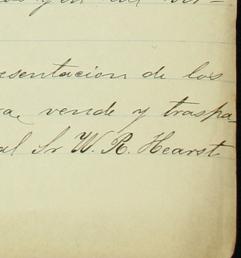 esentacion de los
ra, vende y traspa-
al Sr W. R. Hearst